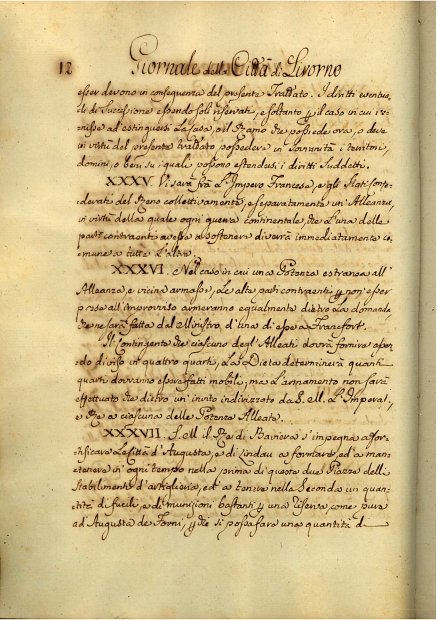 12 Giornale della Città di Livorno
esser devono in conseguenza del presente Trattato. I diritti eventua,
li di Successione essendo soli riservati, e soltanto p il caso in cui ve
nisse ad estinguersi la Casa, o il Ramo che possiede ora, o deve
in virtù del presente trattato possedere in Sovranità i territorj,
dominj, o beni su i quali possono estendersi i diritti Suddetti.
XXXV. Vi sarà frà L'Impero Francese, e gli Stati Confe,
derati del Reno collettivamente, e separatamente un'Alleanza,
in virtù della quale ogni guerra continentale, che l'una delle
parti contraente avesse a sostenere diverrà immediatamente co,
mune a tutte l'altre.
XXXVI. Nel caso in cui una Potenza estranea all'
Alleanza, e vicina armasse, Le alte parti contraenti p non esser
prese all'improviso armeranno egualmente dietro La domanda
che ne sarà fatta dal Ministro d'una di esse a Francfort.
Il Contingente che ciascuno degl'Alleati dovrà fornire essen,
do diviso in quattro quarti, La Dieta determinerà quanti
quarti dovranno essere fatti mobili, ma L'armamento non sarà
effettuato che dietro un'invito indirizzato da S. M. L'Imperat,
e Re a ciascuna delle Potenze Alleate.
XXXVII. S. M. il Re di Baviera s'impegna a for,
tificare Le Città d'Augusta, e di Lindau a formare, ed a man,
tenere in ogni tempo nella prima di queste due Piazze delli
Stabilimenti d'artiglieria, ed a tenere nella Seconda un quan,
tità di fucili, e di munizioni bastanti p una riserva, come pure
ad Augusta de Forni, p che si possa fare una quantità d